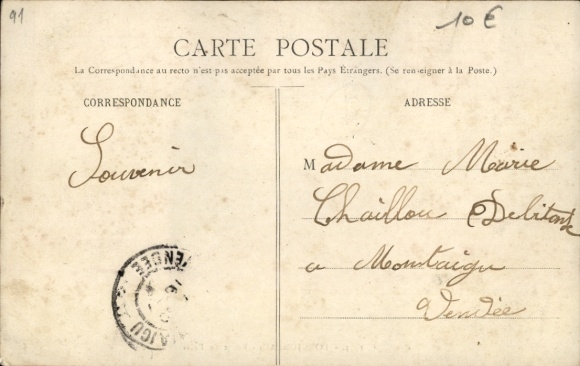 91
10 €
CARTE POSTALE
La Correspondance au recto n'est pas acceptée par tous les Pays Étrangers. (Se renseigner à la Poste.)
CORRESPONDANCE
ADRESSE
Souvenir
Madame Marie
Chaillou Debitante
a Montaigu
Vendée
VENDEE